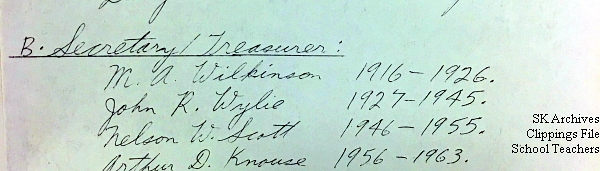 B. Secretary/Treasurer:
M. A. Wilkinson 1916-1926.
John R. Wylie 1927-1945.
Nelson W. Scott 1946-1955.
Arthur D. Knouse 1956-1963.
SK Archives
Clippings File
School Teachers